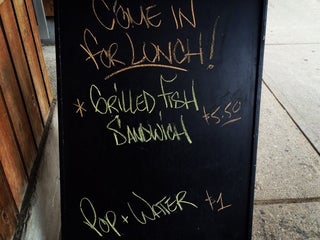 COME IN
FOR LUNCH!
* GRILLED FISH
SANDWICH $5.50
POP + WATER $1